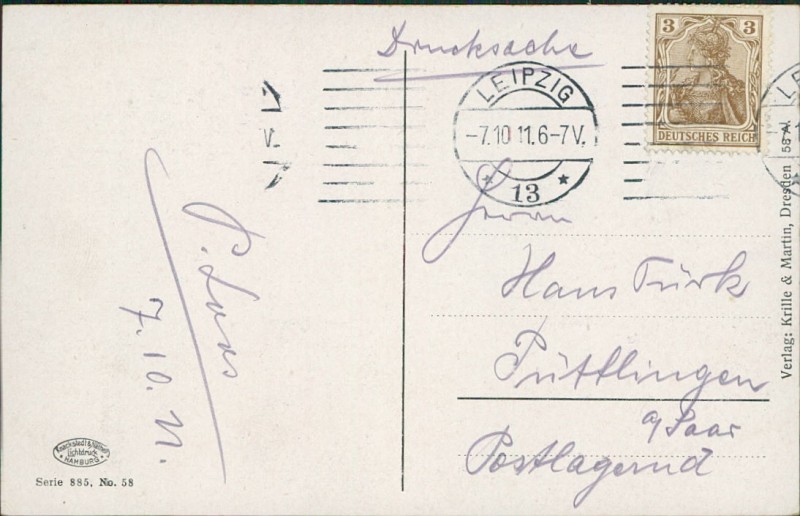 Drucksache
3 3
DEUTSCHES REICH
LEIPZIG
-7.10 11.6-7V.
* 13 *
V.
Herrn
Hans Türk
Püttlingen
a/Saar
Postlagernd
P. Loos
7.10.11.
Knackstedt & Näther
Lichtdruck
HAMBURG
Serie 885, No. 58
Verlag: Krille & Martin, Dresden 58 A.